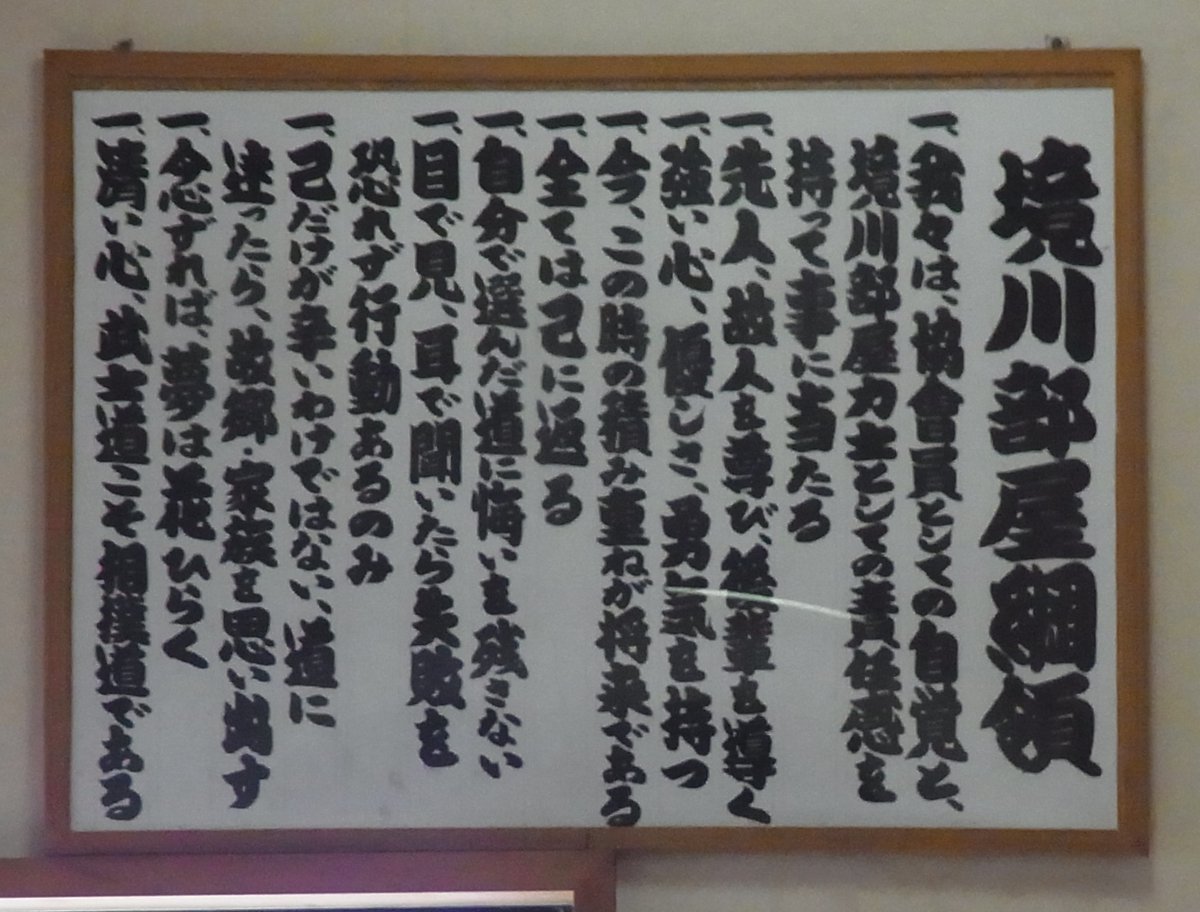 境川部屋綱領
一、我々は、協会員としての自覚と、
境川部屋力士としての責任感を
持って事に当たる
一、先人、故人を尊び、後輩を導く
一、強い心、優しさ、勇気を持つ
一、今、この時の積み重ねが将来である
一、全ては己に返る
一、自分で選んだ道に悔いを残さない
一、目で見、耳で聞いたら失敗を
恐れず行動あるのみ
一、己だけが辛いわけではない、道に
迷ったら、故郷・家族を思い出す
一、念ずれば、夢は花ひらく
一、清い心、武士道こそ相撲道である